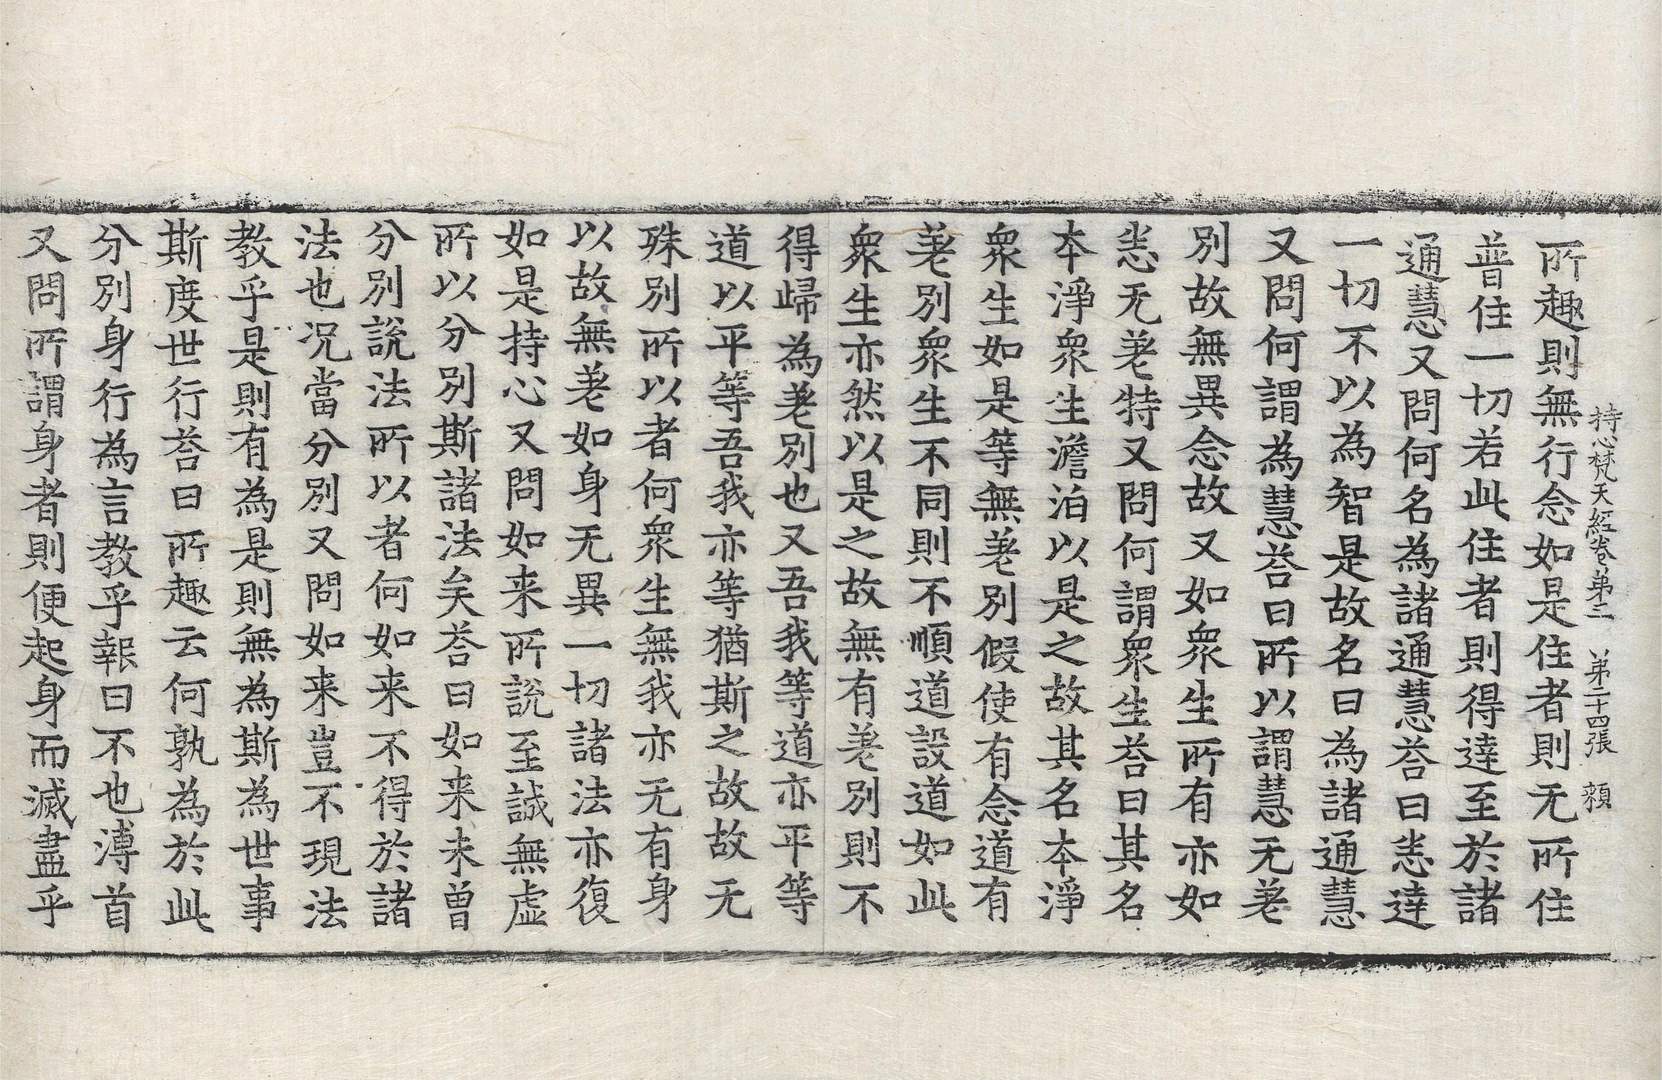 持心梵天経卷第二　第二十四張　頼
所趣則無行念如是住者則无所住
普住一切若此住者則得達至於諸
通慧又問何名為諸通慧荅曰悉達
一切不以為智是故名曰為諸通慧
又問何謂為慧荅曰所以謂慧无差
別故無異念故又如衆生所有亦如
悉无差特又問何謂衆生荅曰其名
本淨衆生澹泊以是之故其名本淨
衆生如是等無差別假使有念道有
差別衆生不同則不順道設道如此
衆生亦然以是之故無有差別則不
得歸為差別也又吾我等道亦平等
道以平等吾我亦等猶斯之故故无
殊別所以者何衆生無我亦无有身
以故無差如身无異一切諸法亦復
如是持心又問如来所說至誠無虛
所以分別斯諸法矣荅曰如来未曾
分別說法所以者何如来不得於諸
法也況當分別又問如来豈不現法
教乎是則有為是則無為斯為世事
斯度世行荅曰所趣云何孰為於此
分別身行為言教乎報曰不也溥首
又問所謂身者則便起身而滅盡乎